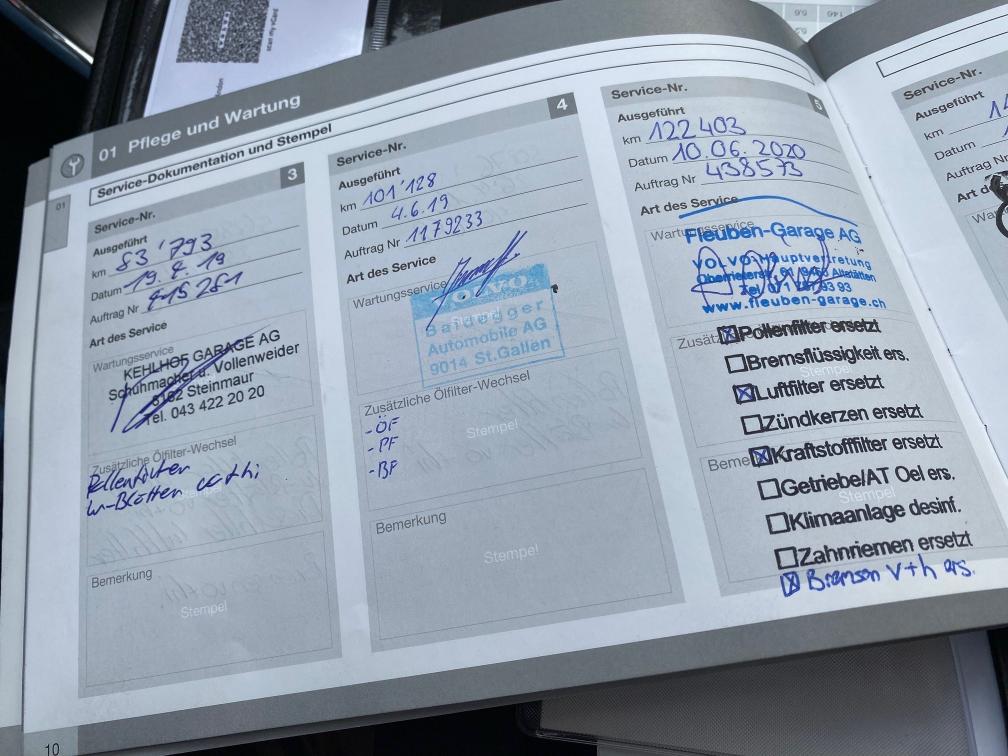 scan my vCard
01 Pflege und Wartung
Service-Dokumentation und Stempel
01
3
Service-Nr.
Ausgeführt
km 83'793
Datum
Auftrag Nr
Art des Service
Wartungsservice
KEHLHOF GARAGE AG
Schuhmacher u. Vollenweider
8162 Steinmaur
Tel. 043 422 20 20
Zusätzliche Ölfilter-Wechsel
Pollenfilter
Bemerkung
Stempel
10
4
Service-Nr.
Ausgeführt
km 101'128
Datum 4.6.19
Auftrag Nr 1179233
Art des Service
Wartungsservice
VOLVO
Baldegger
Automobile AG
9014 St.Gallen
Zusätzliche Ölfilter-Wechsel
-ÖF
-PF
-BF
Stempel
Bemerkung
Stempel
5
Service-Nr.
Ausgeführt
km 122403
Datum 10.06.2020
Auftrag Nr 438573
Art des Service
Fleuben-Garage AG
VOLVO-Hauptvertretung
www.fleuben-garage.ch
Pollenfilter ersetzt
Bremsflüssigkeit ers.
Stempel
Luftfilter ersetzt
Zündkerzen ersetzt
Kraftstofffilter ersetzt
Getriebe/AT Oel ers.
Stempel
Klimaanlage desinf.
Zahnriemen ersetzt
Bremsen V+h ers.
Service-Nr.
Ausgeführt
km
Datum
Auftrag Nr